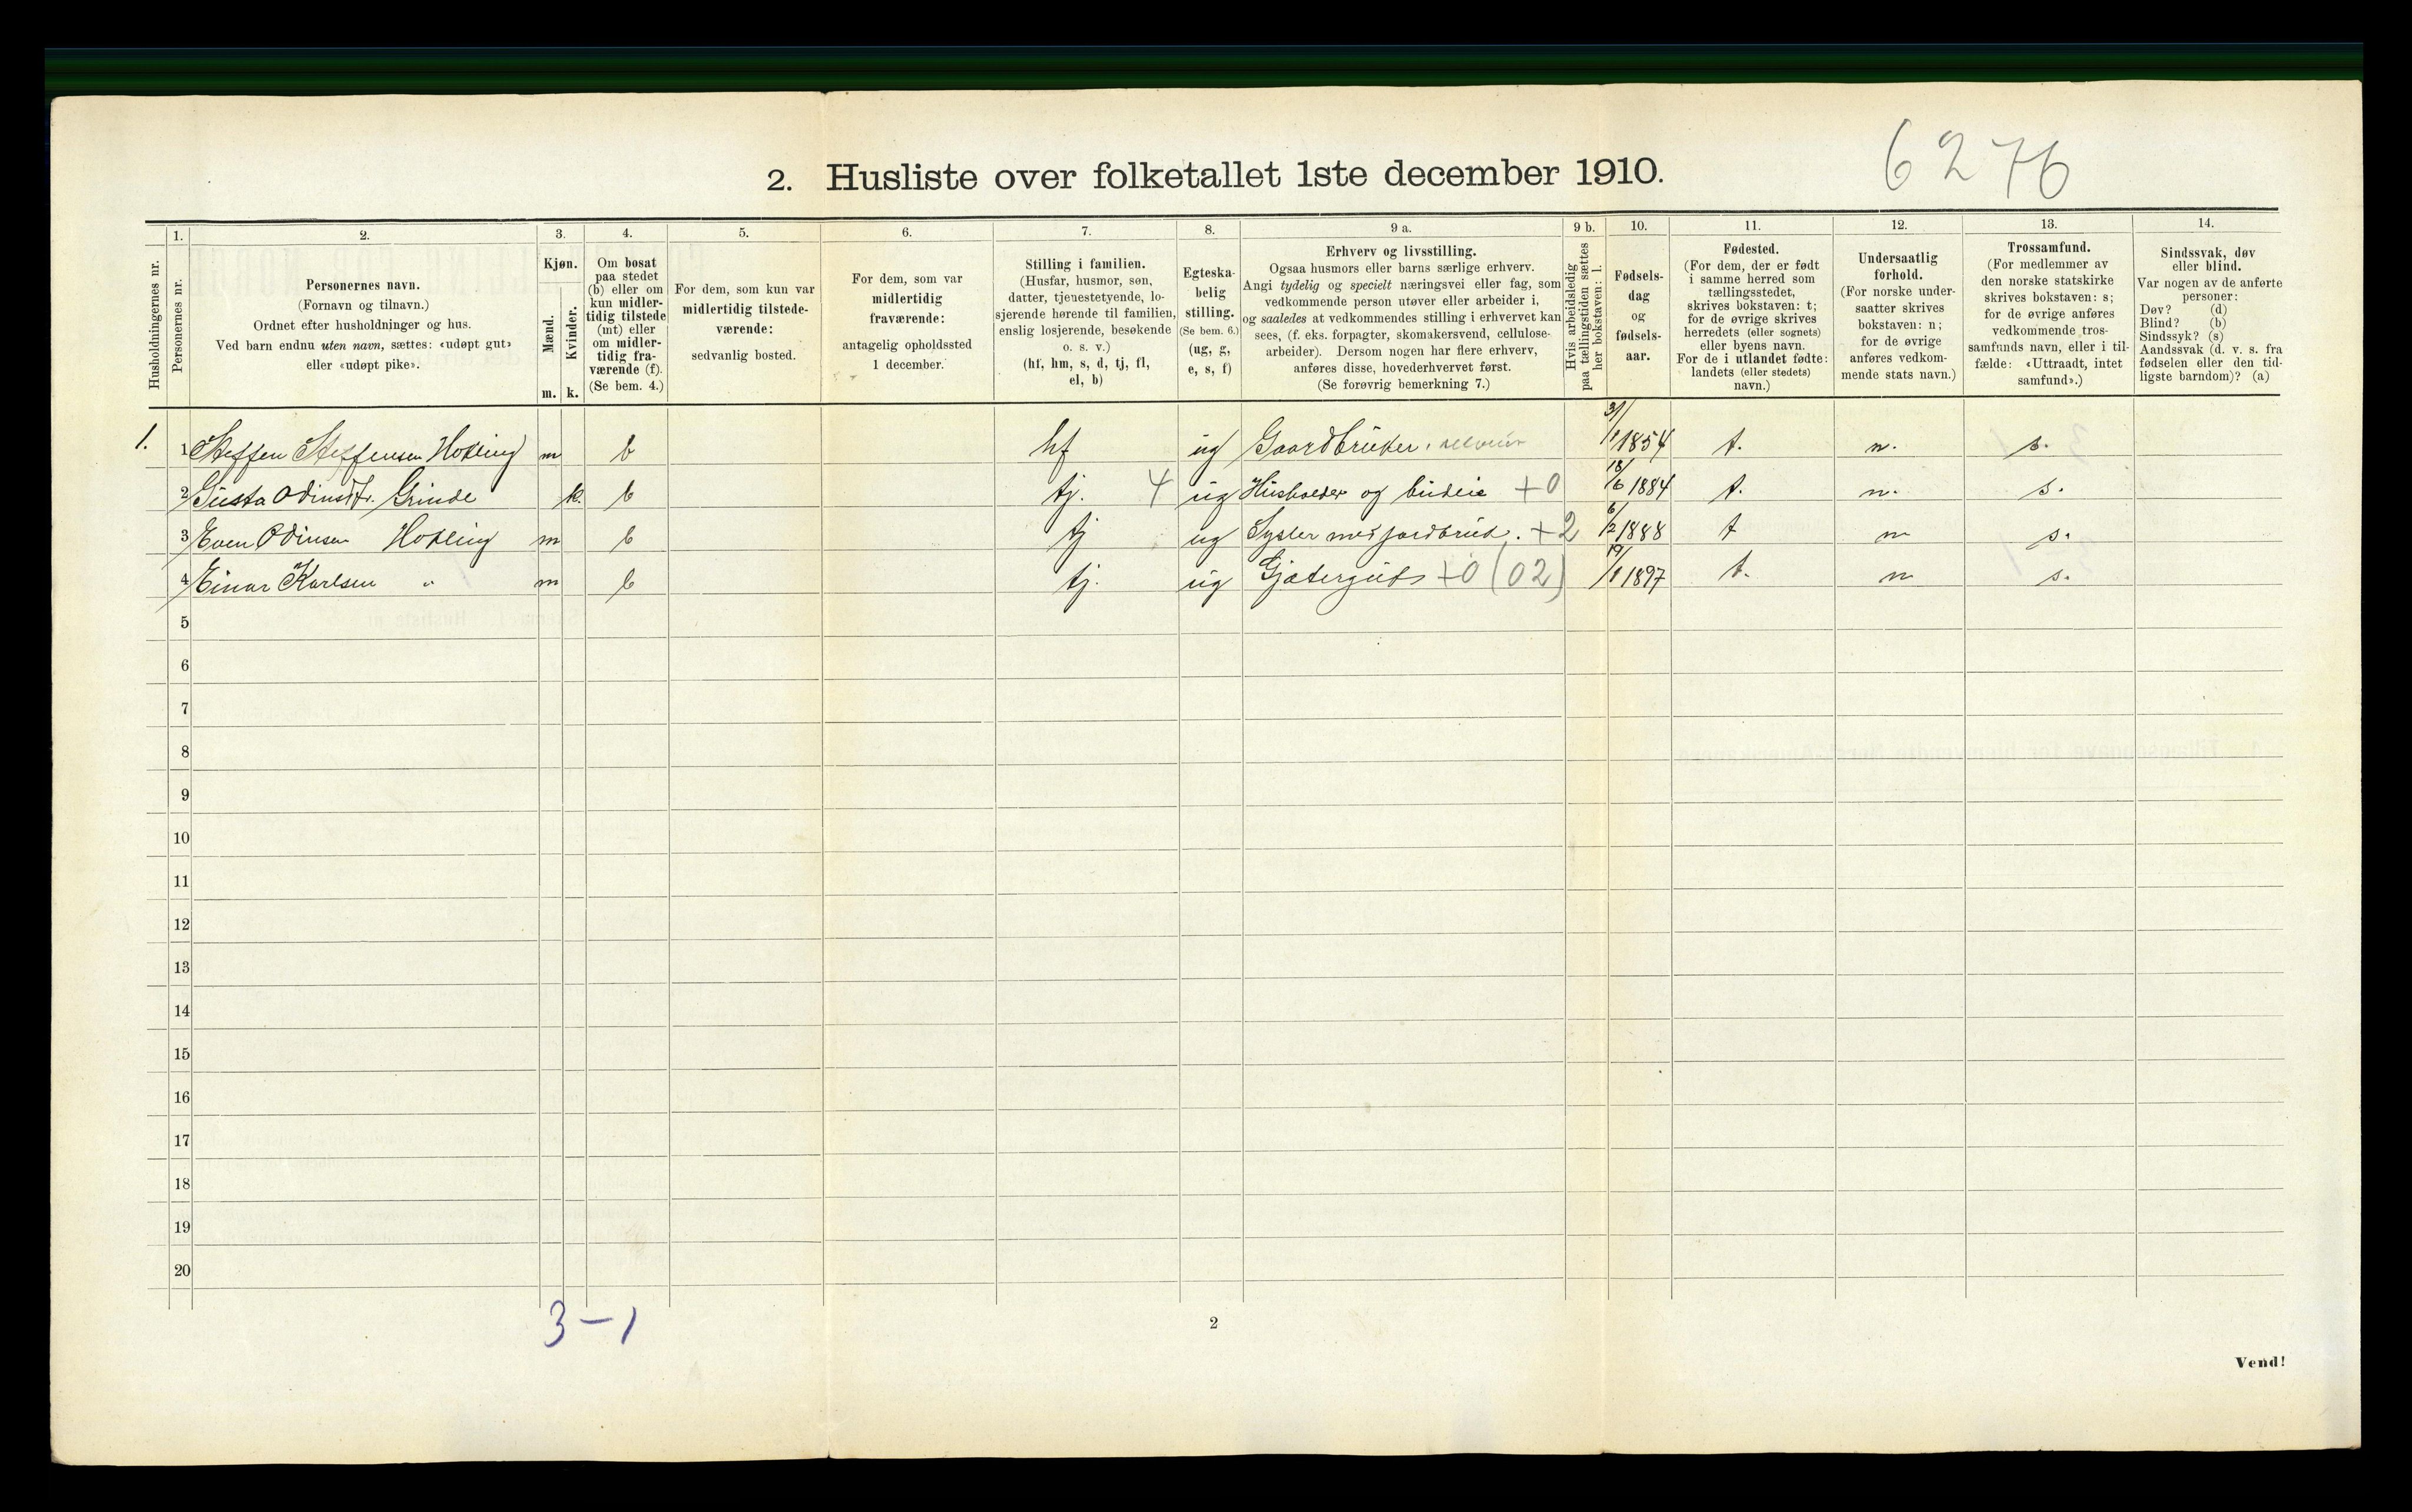 6276
2. Husliste over folketallet 1ste december 1910.
Husholdningernes nr.
1.
Personernes nr.
2.
Personernes navn.
(Fornavn og tilnavn.)
Ordnet efter husholdninger og hus.
Ved barn endnu uten navn, sættes: «udøpt gut»
eller «udøpt pike».
3.
Kjøn.
Mænd.
Kvinder.
m. k.
4.
Om bosat
paa stedet
(b) eller om
kun midler-
tidig tilstede
(mt) eller
om midler-
tidig fra-
værende (f).
(Se bem. 4.)
5.
For dem, som kun var
midlertidig tilstede-
værende:
sedvanlig bosted.
6.
For dem, som var
midlertidig
fraværende:
antagelig opholdssted
1 december.
7.
Stilling i familien.
(Husfar, husmor, søn,
datter, tjenestetyende, lo-
sjerende hørende til familien,
enslig losjerende, besøkende
o. s. v.)
(hf, hm, s, d, tj, fl,
el, b)
8.
Egteska-
belig
stilling.
(Se bem. 6.)
(ug, g,
e, s, f)
9 a.
Erhverv og livsstilling.
Ogsaa husmors eller barns særlige erhverv.
Angi tydelig og specielt næringsvei eller fag, som
vedkommende person utøver eller arbeider i,
og saaledes at vedkommendes stilling i erhvervet kan
sees, (f. eks. forpagter, skomakersvend, cellulose-
arbeider). Dersom nogen har flere erhverv,
anføres disse, hovederhvervet først.
(Se forøvrig bemerkning 7.)
9 b.
Hvis arbeidsledig
paa tællingstiden sættes
her bokstaven: l.
10.
Fødsels-
dag
og
fødsels-
aar.
11.
Fødested.
(For dem, der er født
i samme herred som
tællingsstedet,
skrives bokstaven: t;
for de øvrige skrives
herredets (eller sognets)
eller byens navn.
For de i utlandet fødte:
landets (eller stedets)
navn.)
12.
Undersaatlig
forhold.
(For norske under-
saatter skrives
bokstaven: n;
for de øvrige
anføres vedkom-
mende stats navn.)
13.
Trossamfund.
(For medlemmer av
den norske statskirke
skrives bokstaven: s;
for de øvrige anføres
vedkommende tros-
samfunds navn, eller i til-
fælde: «Uttraadt, intet
samfund».)
14.
Sindssvak, døv
eller blind.
Var nogen av de anførte
personer:
Døv? (d)
Blind? (b)
Sindssyk? (s)
Aandssvak (d. v. s. fra
fødselen eller den tid-
ligste barndom)? (a)
1. 1 Steffen Steffensen Hokling m b hf ug Gaardbruker 31/1 1854 t. n. s.
2 Gusta Odinsdtr. Grinde k. b tj. 4 ug Husholder og budeie +0 18/6 1884 t. n. s.
3 Even Odinsen Hokling m b tj ug Sysler med jordbruk. +2 6/2 1888 t n s.
4 Einar Karlsen " m b tj. ug Gjætergut +0 (02) 19/1 1897 t. n s.
5
6
7
8
9
10
11
12
13
14
15
16
17
18
19
20
3-1
2
Vend!